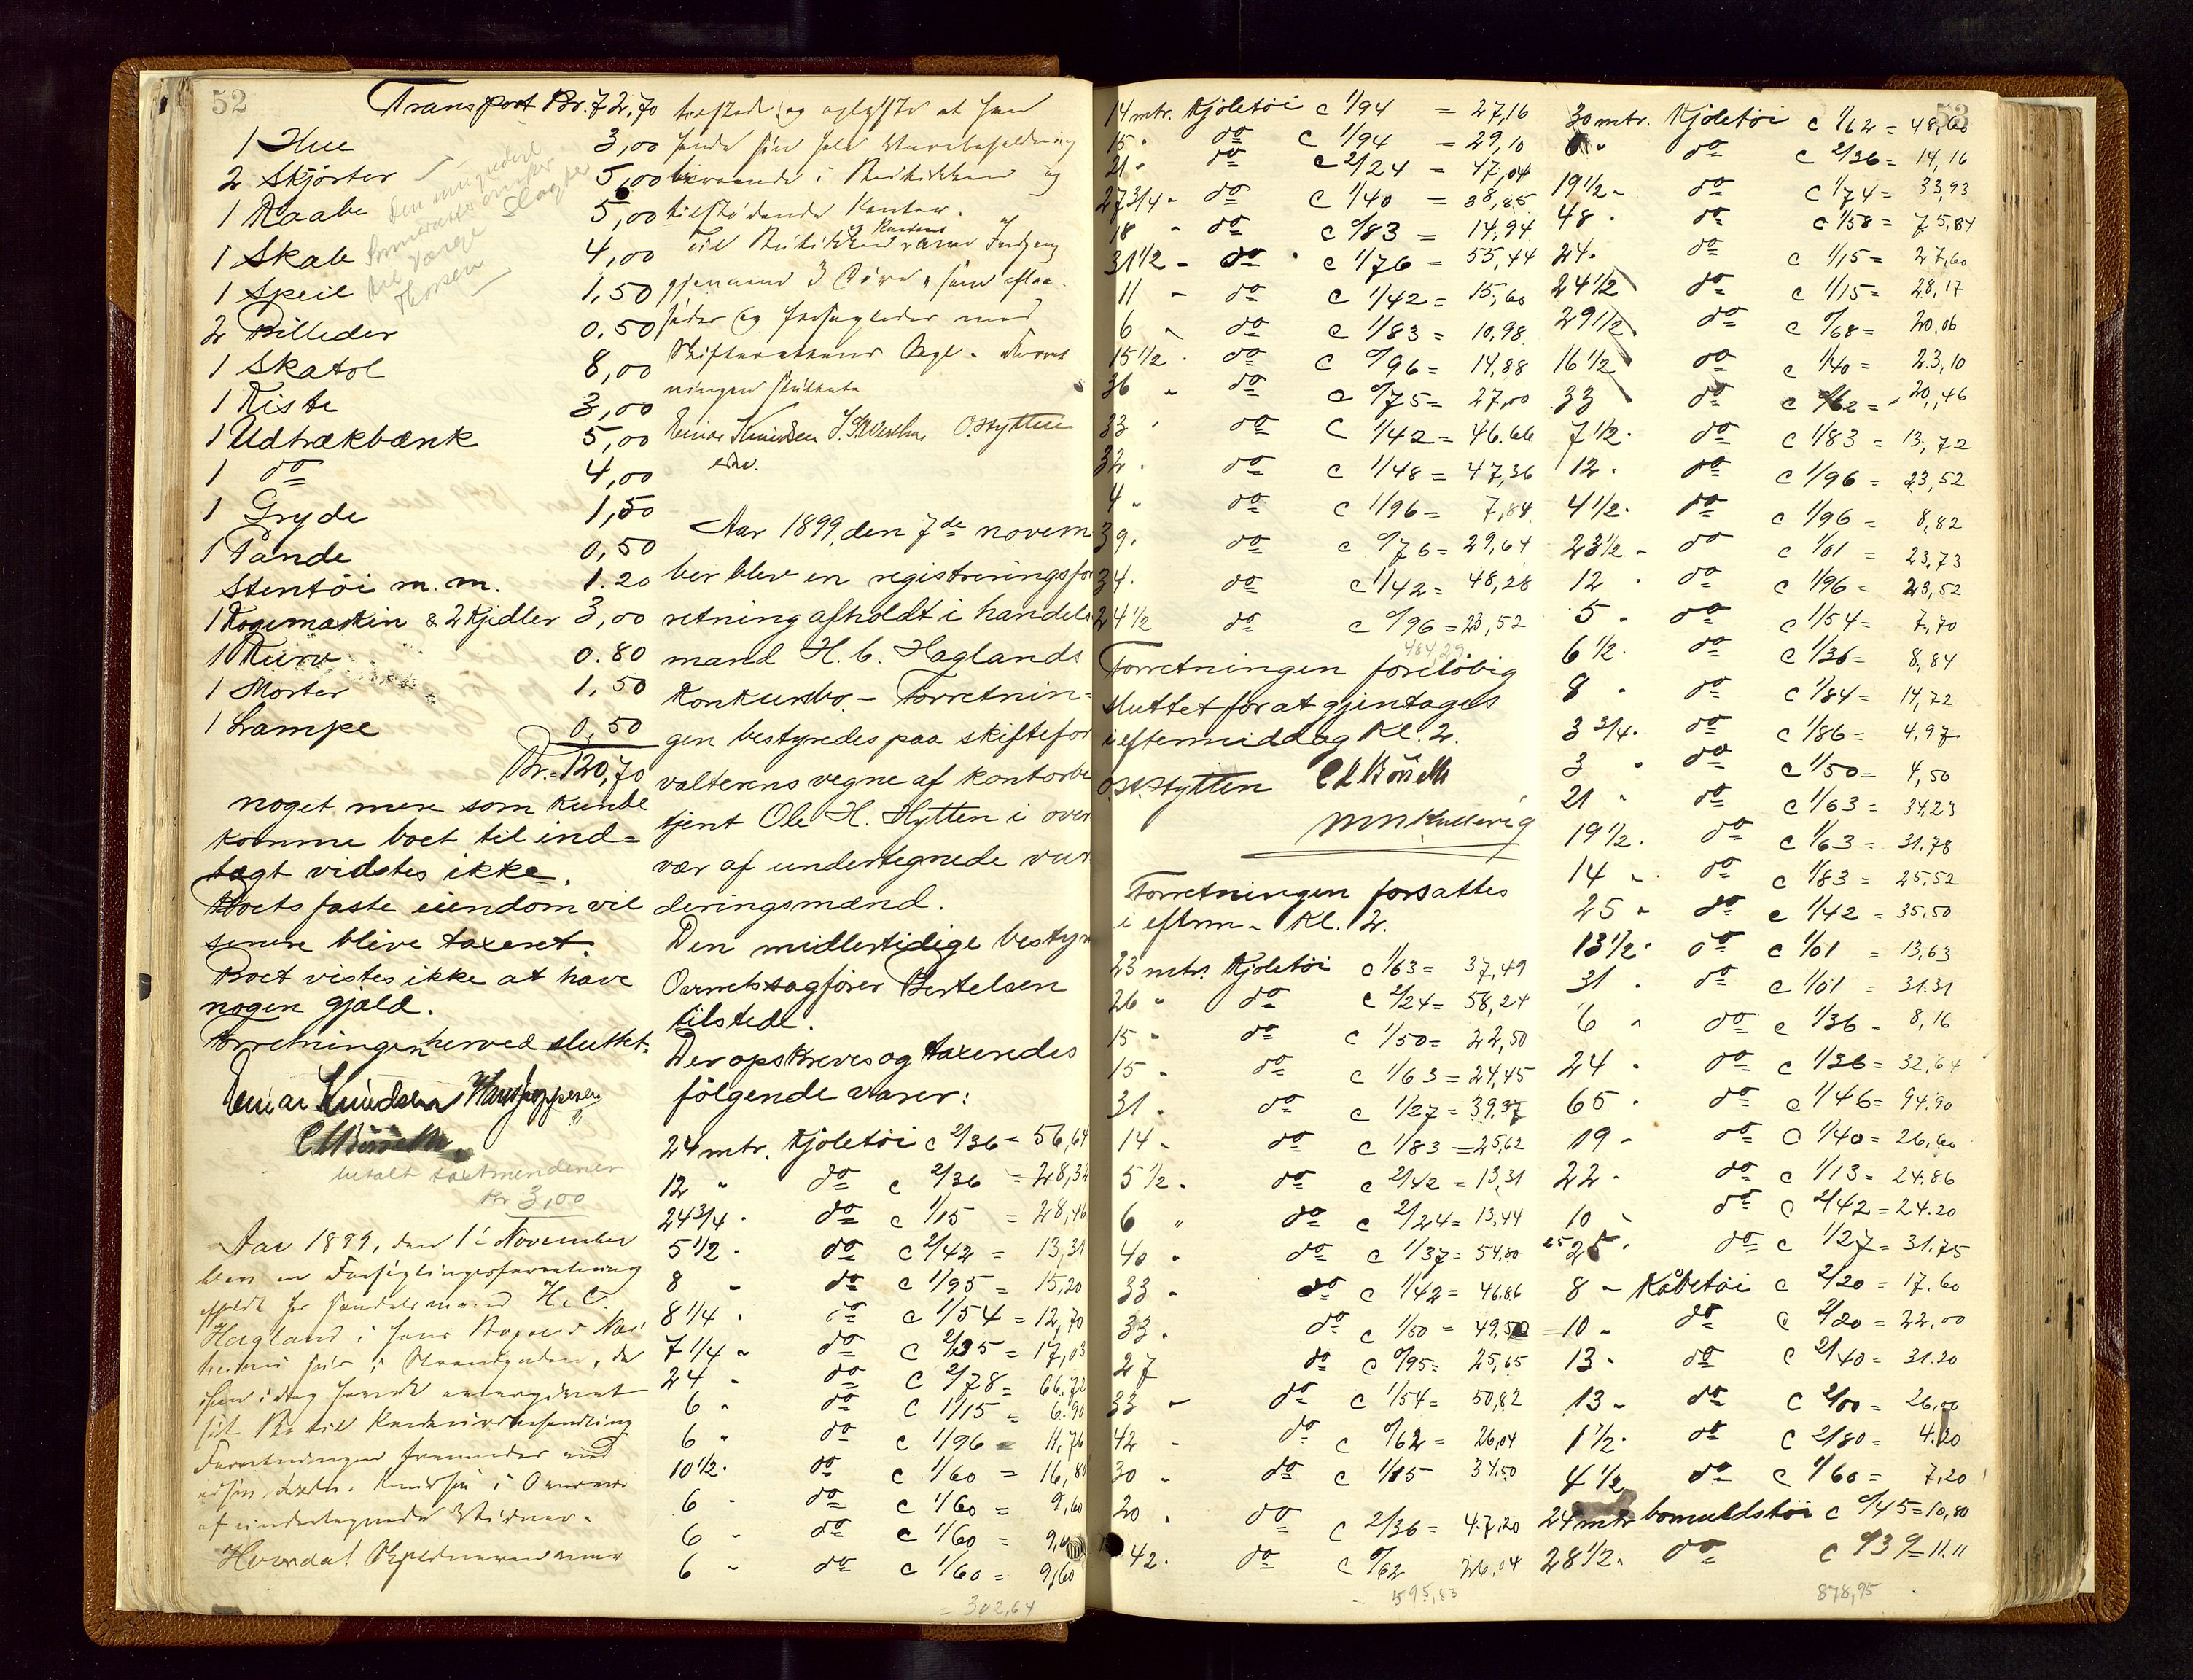 52
Transport Kr. 72,70
1 Hue 3,00
2 Skjørter 5,00
1 Kaabe 5,00
1 Skab 4,00
1 Speil 1,50
2 Billeder 0.50
1 Skatol 8,00
1 Kiste 3,00
1 Udtrækbænk 5,00
1 do 4,00
1 Gryde 1,50
1 Pande 0,50
Stentøi m. m. 1.20
1 Kogemaskin & 2 Kjedler 3,00
1 Kurv 0.80
1 Morter 1,50
1 Lampe 0,50
Kr. 120,70
noget mere som kunde
komme boet til ind=
tægt vidstes ikke.
Boets faste eiendom vil
senere blive taxeret.
Boet vistes ikke at have
nogen gjæld.
Forretningen herved sluttet.
Reinar Knudsen
betalt taxtmendener
kr 3,00
Aar 1899, den 1ste November
blev en Forseglingsforretning
afholdt hos handelsmand H. C.
Hagland i hans
i Strandgaden, da
han i dag havde
sit Bo til Konkursbehandling
Forretningen
Knudsen i Overvær
af undertegnede Vidner.
tilstede og oplyste at han
havde sin hele Varebeholdning
beroende i Butikken og
tilstødende Kontor.
Til Butikken og Kontoret var Indgang
gjennem 3 Døre, som aflaa-
sedes og forsegledes med
Skifterettens Segl. Forret
ningen sluttet
Reinar Knudsen O. Hytten
Aar 1899, den 7de novem
ber blev en registreringsfor
retning afholdt i handels
mand H. C. Haglands
Konkursbo. - Forretnin=
gen bestyredes paa skiftefor
valterens vegne af kontorbe
tjent Ole H. Hytten i over
vær af undertegnede vur
deringsmænd.
Den midlertidige bestyr
Overretssagfører Bertelsen
tilstede.
Der opskreves og taxeredes
følgende varer:
24 mtr. Kjoletøi c 2/36 = 56,64
12 " do c 2/36 = 28,32
24 3/4 " do c 1/15 = 28,46
5 1/2 " do c 2/42 = 13,31
8 " do c 1/95 = 15,20
8 1/4 " do c 1/54 = 12,70
7 1/4 " do c 2/35 = 17,03
24 " do c 2/78 = 66.72
6 " do c 1/15 = 6.90
6 " do c 1/96 = 11,76
10 1/2 " do c 1/60 = 16,80
6 " do c 1/60 = 9,60
6 " do c 1/60 =
6 " do c 1/60 = 9,60
= 302,64
53
14 mtr. Kjoletøi c 1/94 = 27,16
15 " do c 1/94 = 29,10
21 " do c 2/24 = 47,04
27 3/4 " do c 1/40 = 38,85
18 " do c 0/83 = 14,94
31 1/2 " do c 1/76 = 55,44
11 " do c 1/42 = 15,60
6 " do c 1/83 = 10,98
15 1/2 " do c 0/96 = 14,88
36 " do c 0/75 = 27,00
33 " do c 1/42 = 46.66
32 " do c 1/48 = 47,36
4 " do c 1/96 = 7,84
39 " do c 0/76 = 29,64
34 " do c 1/42 = 48,28
24 1/2 do c 0/96 = 23,52
484,29
Forretningen foreløbig
sluttet for at gjentages
i eftermiddag Kl. 2.
O. H. Hytten
Forretningen forsattes
i eftrm. Kl. 2.
23 mtr. Kjoletøi c 1/63 = 37,49
26 " do c 2/24 = 58,24
15 " do c 1/50 = 22,50
15 " do c 1/63 = 24,45
31 " do c 1/27 = 39.37
14 " do c 1/83 = 25,62
5 1/2 " do c 2/42 = 13,31
6 " do c 2/24 = 13,44
40 " do c 1/37 = 54,80
33 " do c 1/42 = 46.86
33 " do c 1/50 = 49.50
27 do c 0/95 = 25,65
33 " do c 1/54 = 50,82
42 " do c 0/62 = 26,04
30 " do c 1/15 34.50
20 " do c 2/36 = 47,20
42 " do c 0/62 26,04
595,83
30 mtr. Kjoletøi c 1/62 = 48,60
6 " do c 2/36 = 14,16
19 1/2 " do c 1/74 = 33,93
48 " do c 1/58 = 75,84
24 " do c 1/15 = 27,60
24 1/2 do c 1/15 = 28,17
29 1/2 do c 0/68 = 20.06
16 1/2 do c 1/40 = 23,10
33 do c 0/62 = 20,46
7 1/2 " do c 1/83 = 13,72
12 " do c 1/96 = 23,52
4 1/2 " do c 1/96 = 8,82
23 1/2 " do c 1/01 = 23,73
12 " do c 1/96 = 23,52
5 " do c 1/54 = 7,70
6 1/2 " do c 1/36 = 8,84
8 " do c 1/84 = 14,72
3 3/4 " do c 1/86 = 4,97
3 " do c 1/50 = 4,50
21 " do c 1/63 = 34,23
19 1/2 " do c 1/63 = 31.78
14 " do c 1/83 = 25,52
25 " do c 1/42 = 35,50
13 1/2 " do c 1/01 = 13,63
31 " do c 1/01 = 31.31
6 " do c 1/36 = 8,16
24 " do c 1/36 = 32,64
65 " do c 1/46 = 94.90
19 " do c 1/40 = 26,60
22 " do c 1/13 = 24.86
10 " do c 2/42 = 24.20
25 " do c 1/27 = 31.75
8 " Kåbetøi c 2/20 = 17.60
10 " do c 2/20 = 22.00
13 " do c 2/40 = 31.20
13 " do c 2/00 = 26,00
1 1/2 " do c 2/80 = 4.20
4 1/2 do c 1/60 = 7,20
24 mtr bomuldstøi c 0/45 = 10,80
28 1/2 " do c 0/39 = 11.11
878,95